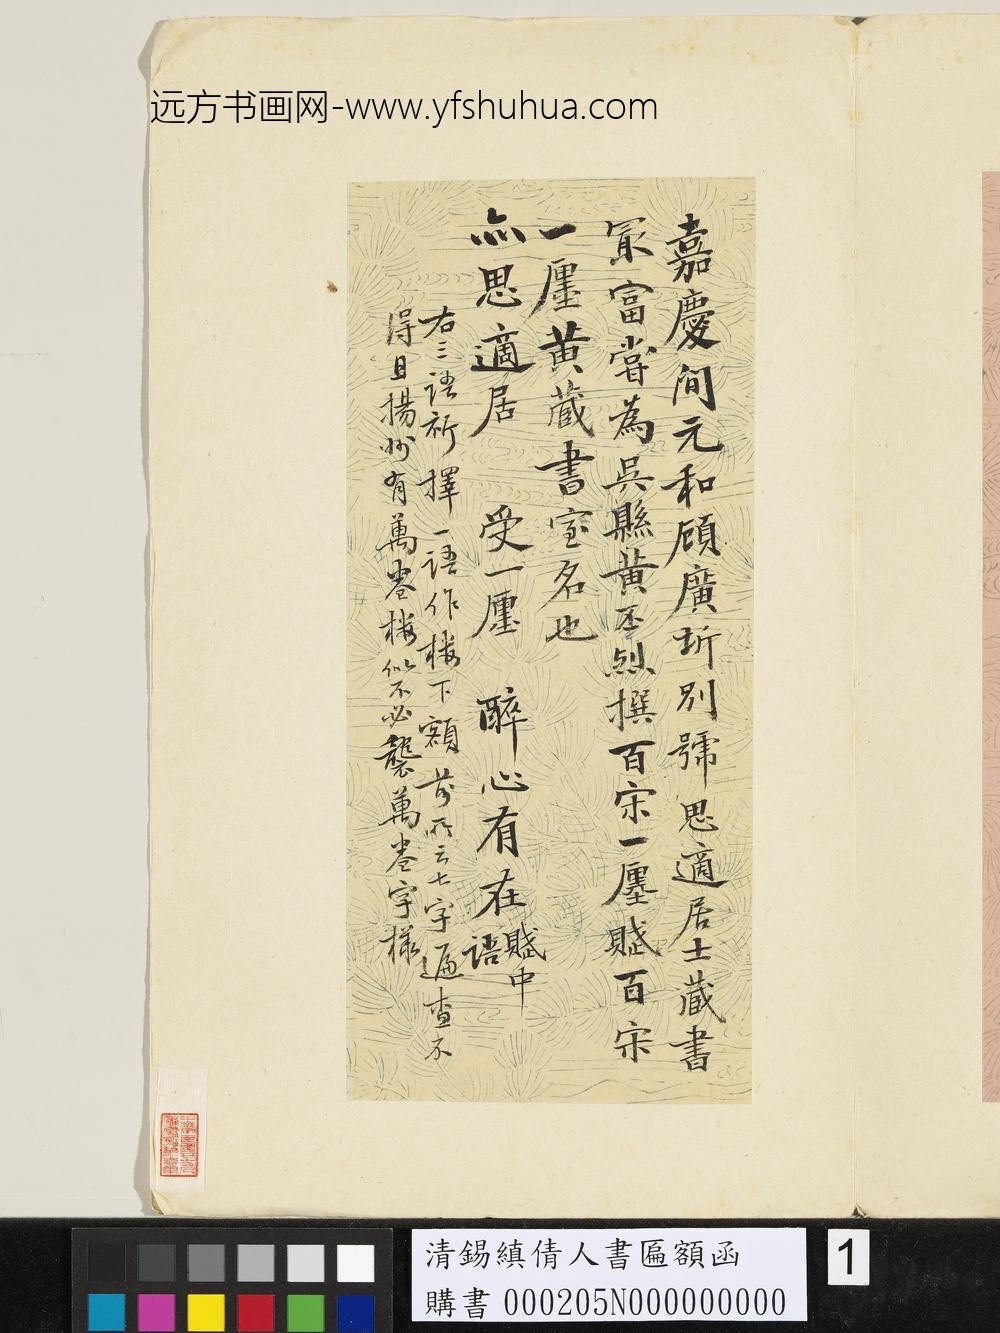 远方书画网-www.yfshuhua.com
嘉慶間元和顧廣圻別號思適居士藏書
冣富嘗為吳縣黃丕烈撰百宋一廛賦百宋
一廛黃藏書室名也
亦思適居 受一廛 醉心有在 賦中語
右三語祈擇一語作樓下額前所云七字遍查不
得且揚州有萬卷樓似不必襲萬卷字樣
清錫縝倩人書匾額函
購書 000205N000000000
1